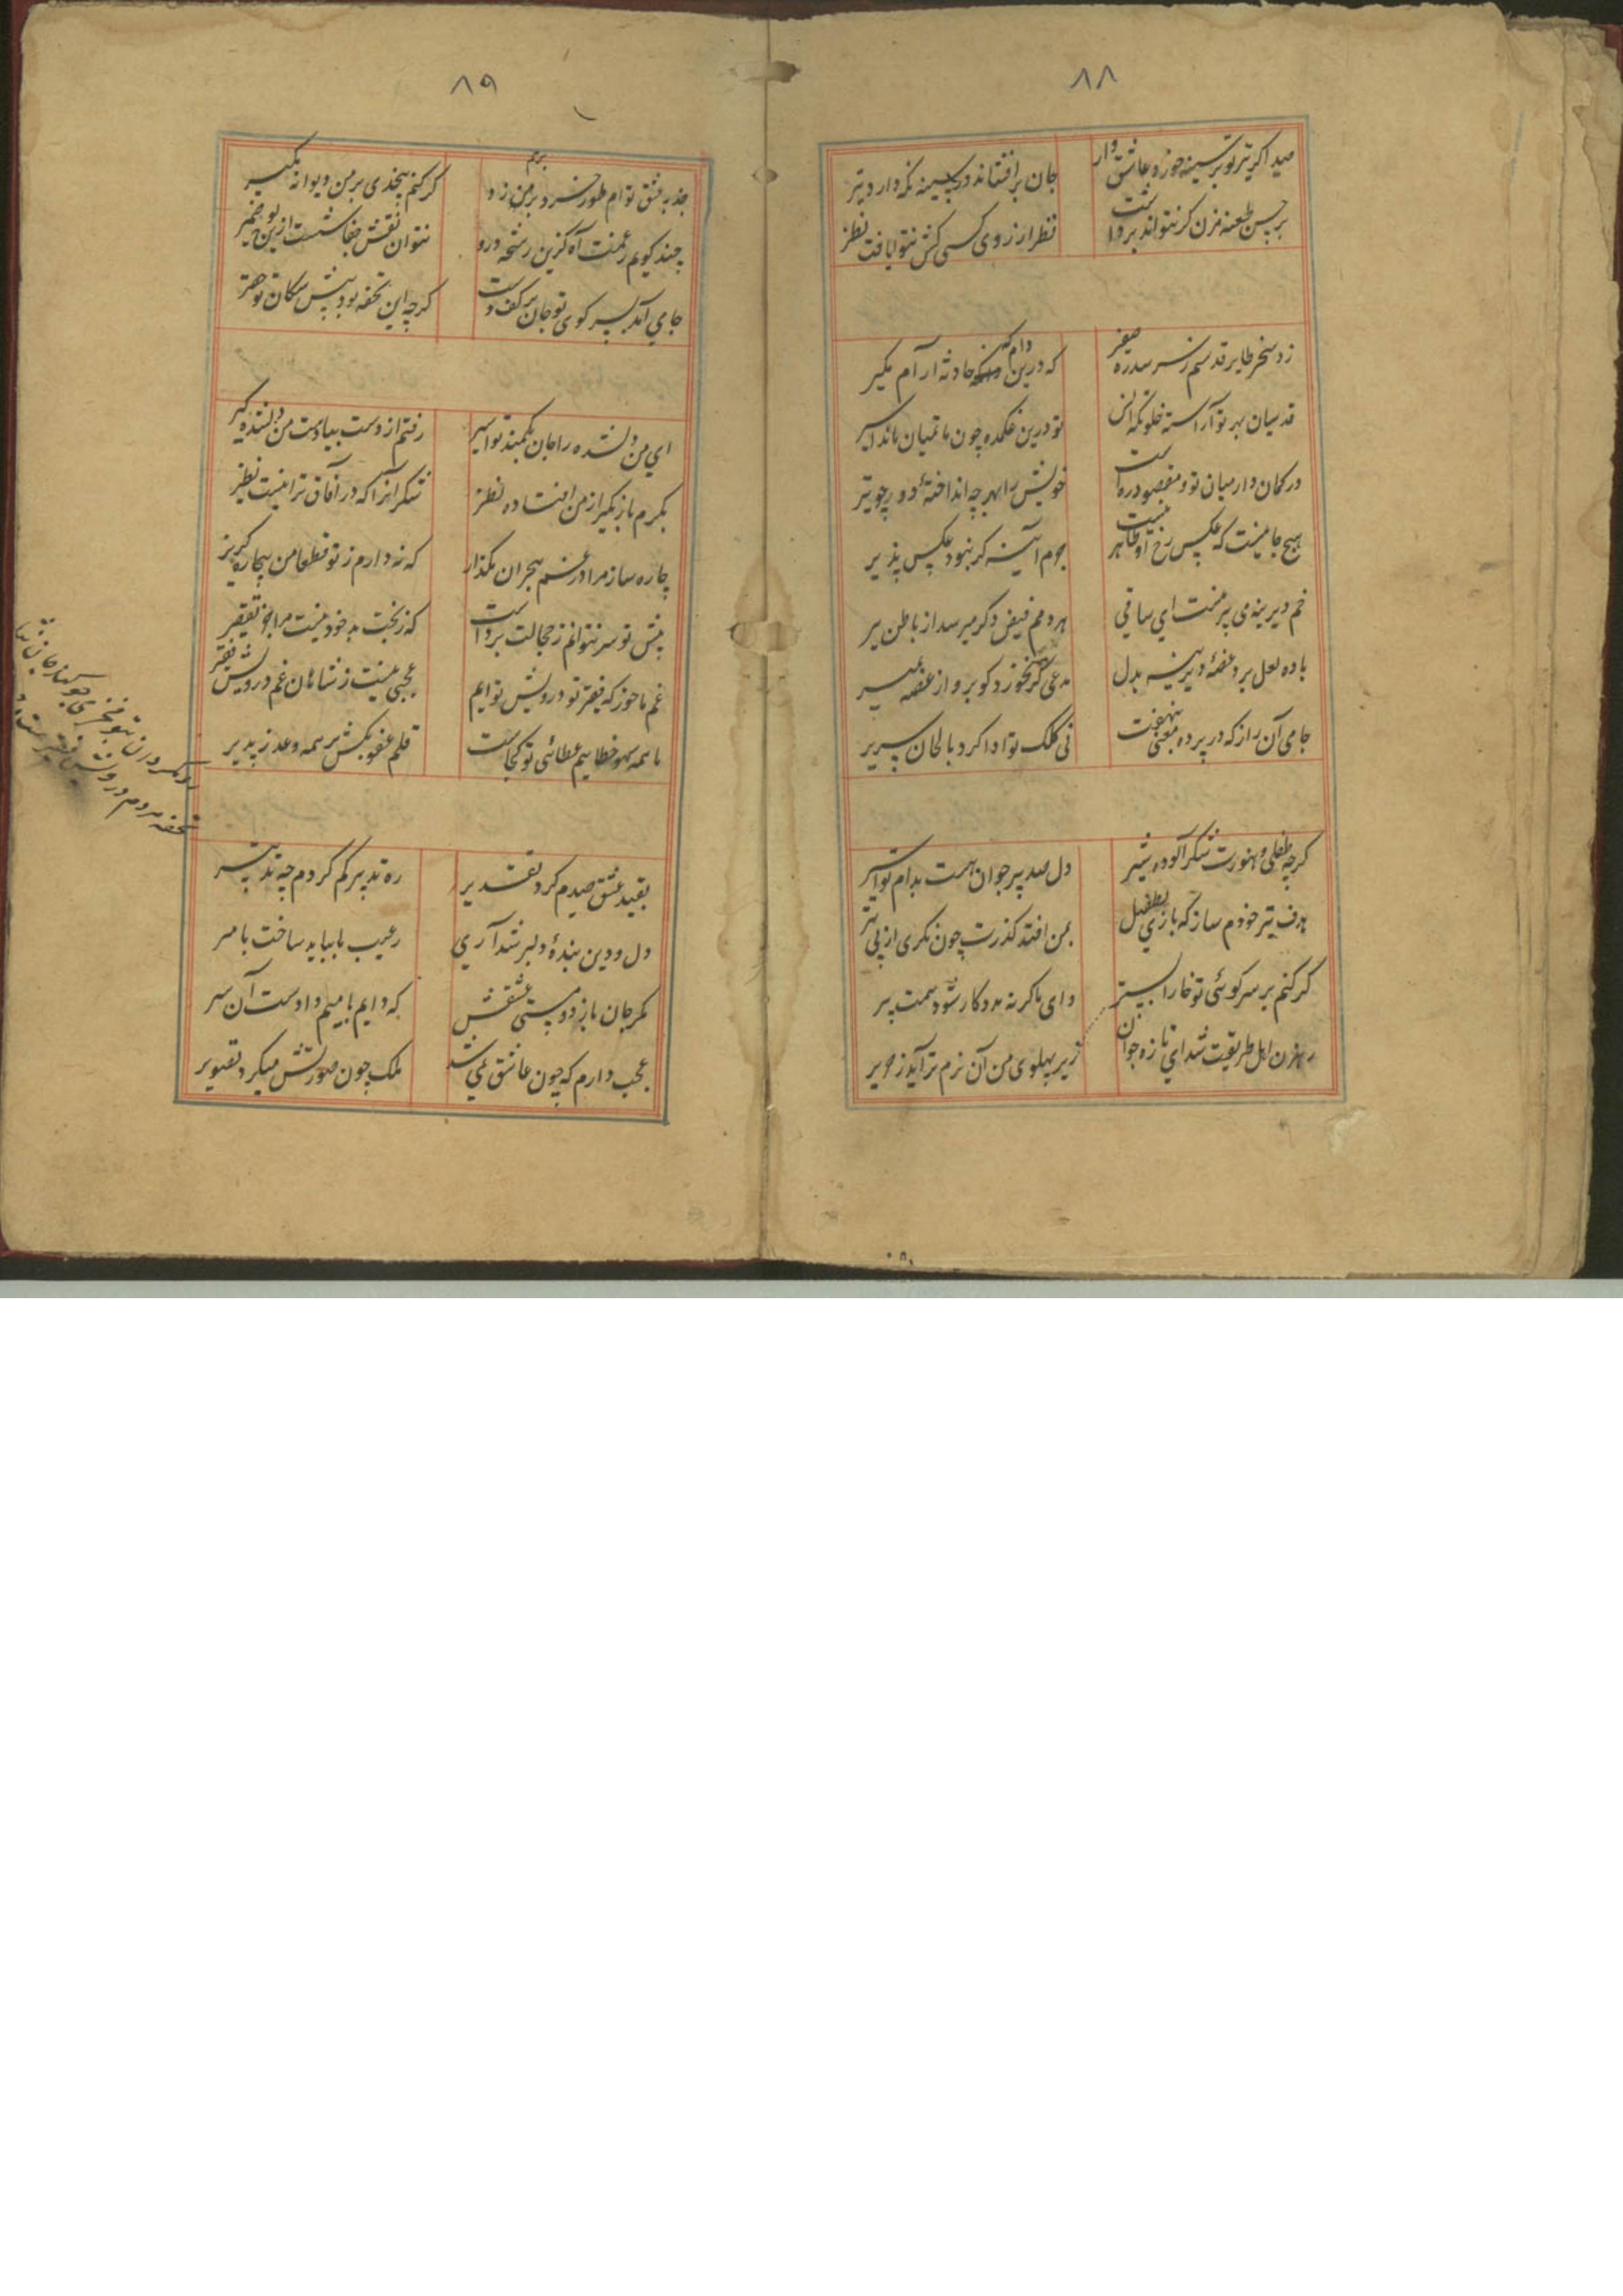 ۸۸
صید اگر تیر تو بر سینه خورد عاشق وار
جان برافشاند و در سینه نگه دارد تیر
بر حسن طعنه مزن گر نتواند برداشت
نظر از روی کسی کش نتوان یافت نظیر
زد سحر طایر قدسم ز سر سدره صفیر
که درین دامگه حادثه آرام مگیر
قدسیان بهر تو آراسته خلوتگه انس
تو درین غمکده چون ماتمیان مانده اسیر
در کمان دار میان تو و مقصود ره است
خویش را بهر چه انداختهٔ دور چو تیر
هیچ جا نیست که عکس رخ او ظاهر نیست
جرم آیینه گر نبود عکس پذیر
خم دیرینه می پیر منست ای ساقی
هردمم فیض دگر میرسد از باطن پیر
باده لعل برد غصهٔ دیرینه بدل
مدعی گر نخورد گو برو از غصه بمیر
جامی آن راز که در پرده معنی بنهفت
نی کلک تو ادا کرد بالحان صریر
گرچه طفلی و هنوزت شکرآلوده شیر
دل صد پیر و جوان هست بدام تو اسیر
هدف تیر خودم ساز که بازی بطفیل
بمن افتد گذرت چون نگری از پی تیر
گر کنم بر سر کوئی تو خارا بستر
زیر پهلوی من آن نرم تر آید ز حریر
رهزن اهل طریقت شد ای تازه جوان
وای ما گر نه مددکار شود همت پیر
۸۹
جذبه عشق توام طور خرد برهم زد
گر کنم بیخودی بر من دیوانه مگیر
چند گویم ز غمت آه کزین رشحه درو
نتوان نقش جفا شست ازین لوح ضمیر
جامی آمد بسر کوی تو جان بر کف دست
گرچه این تحفه بود پیش سگان تو حقیر
ای من دلشده را جان بکمند تو اسیر
رفتم از دست بیا دست من دلشده گیر
بکرم باز مگیر از من افتاده نظر
شکر آنرا که در آفاق ترا نیست نظیر
چاره ساز مرا در غم هجران مگذار
که ندارم ز تو قطعا من بیچاره گریز
پیش تو سر نتوانم ز خجالت برداشت
که ز بخت بد خود نیست مرا جز تقصیر
غم ما خور که فقیر تو و درویش توایم
عجبی نیست ز شاهان غم درویش فقیر
ما همه سهو و خطاییم عطائی تو کجاست
قلم عفو بکش بر همه و عذر پذیر
بقید عشق صیدم کرد تقدیر
ره تدبیر گم کردم چه تدبیر
دل و دین بندهٔ دلبر شد آری
رعیت را بباید ساخت با میر
مگر جان بازد در مستی عشقش
که دایم با میم دادست آن سر
عجب دارم که چون عاشق نمی شد
ملک چون صورتش میکرد تصویر